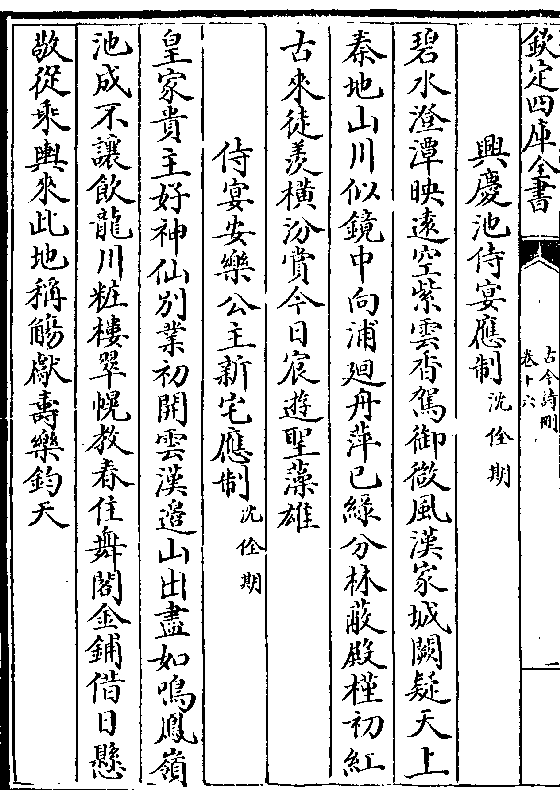 欽定四庫全書
古今詩刪
卷十六
興慶池侍宴應制 沈佺期
碧水澄潭映遠空紫雲香駕御微風漢家城闕疑天上
秦地山川似鏡中向浦廻舟萍已綠分林蔽殿槿初紅
古來徒羨橫汾賞今日宸遊聖藻雄
侍宴安樂公主新宅應制 沈佺期
皇家貴主好神仙別業初開雲漢邉山出盡如鳴鳳嶺
池成不讓飲龍川粧樓翠幌教春住舞閣金鋪借日懸
敬從乘輿來此地稱觴獻壽樂鈞天